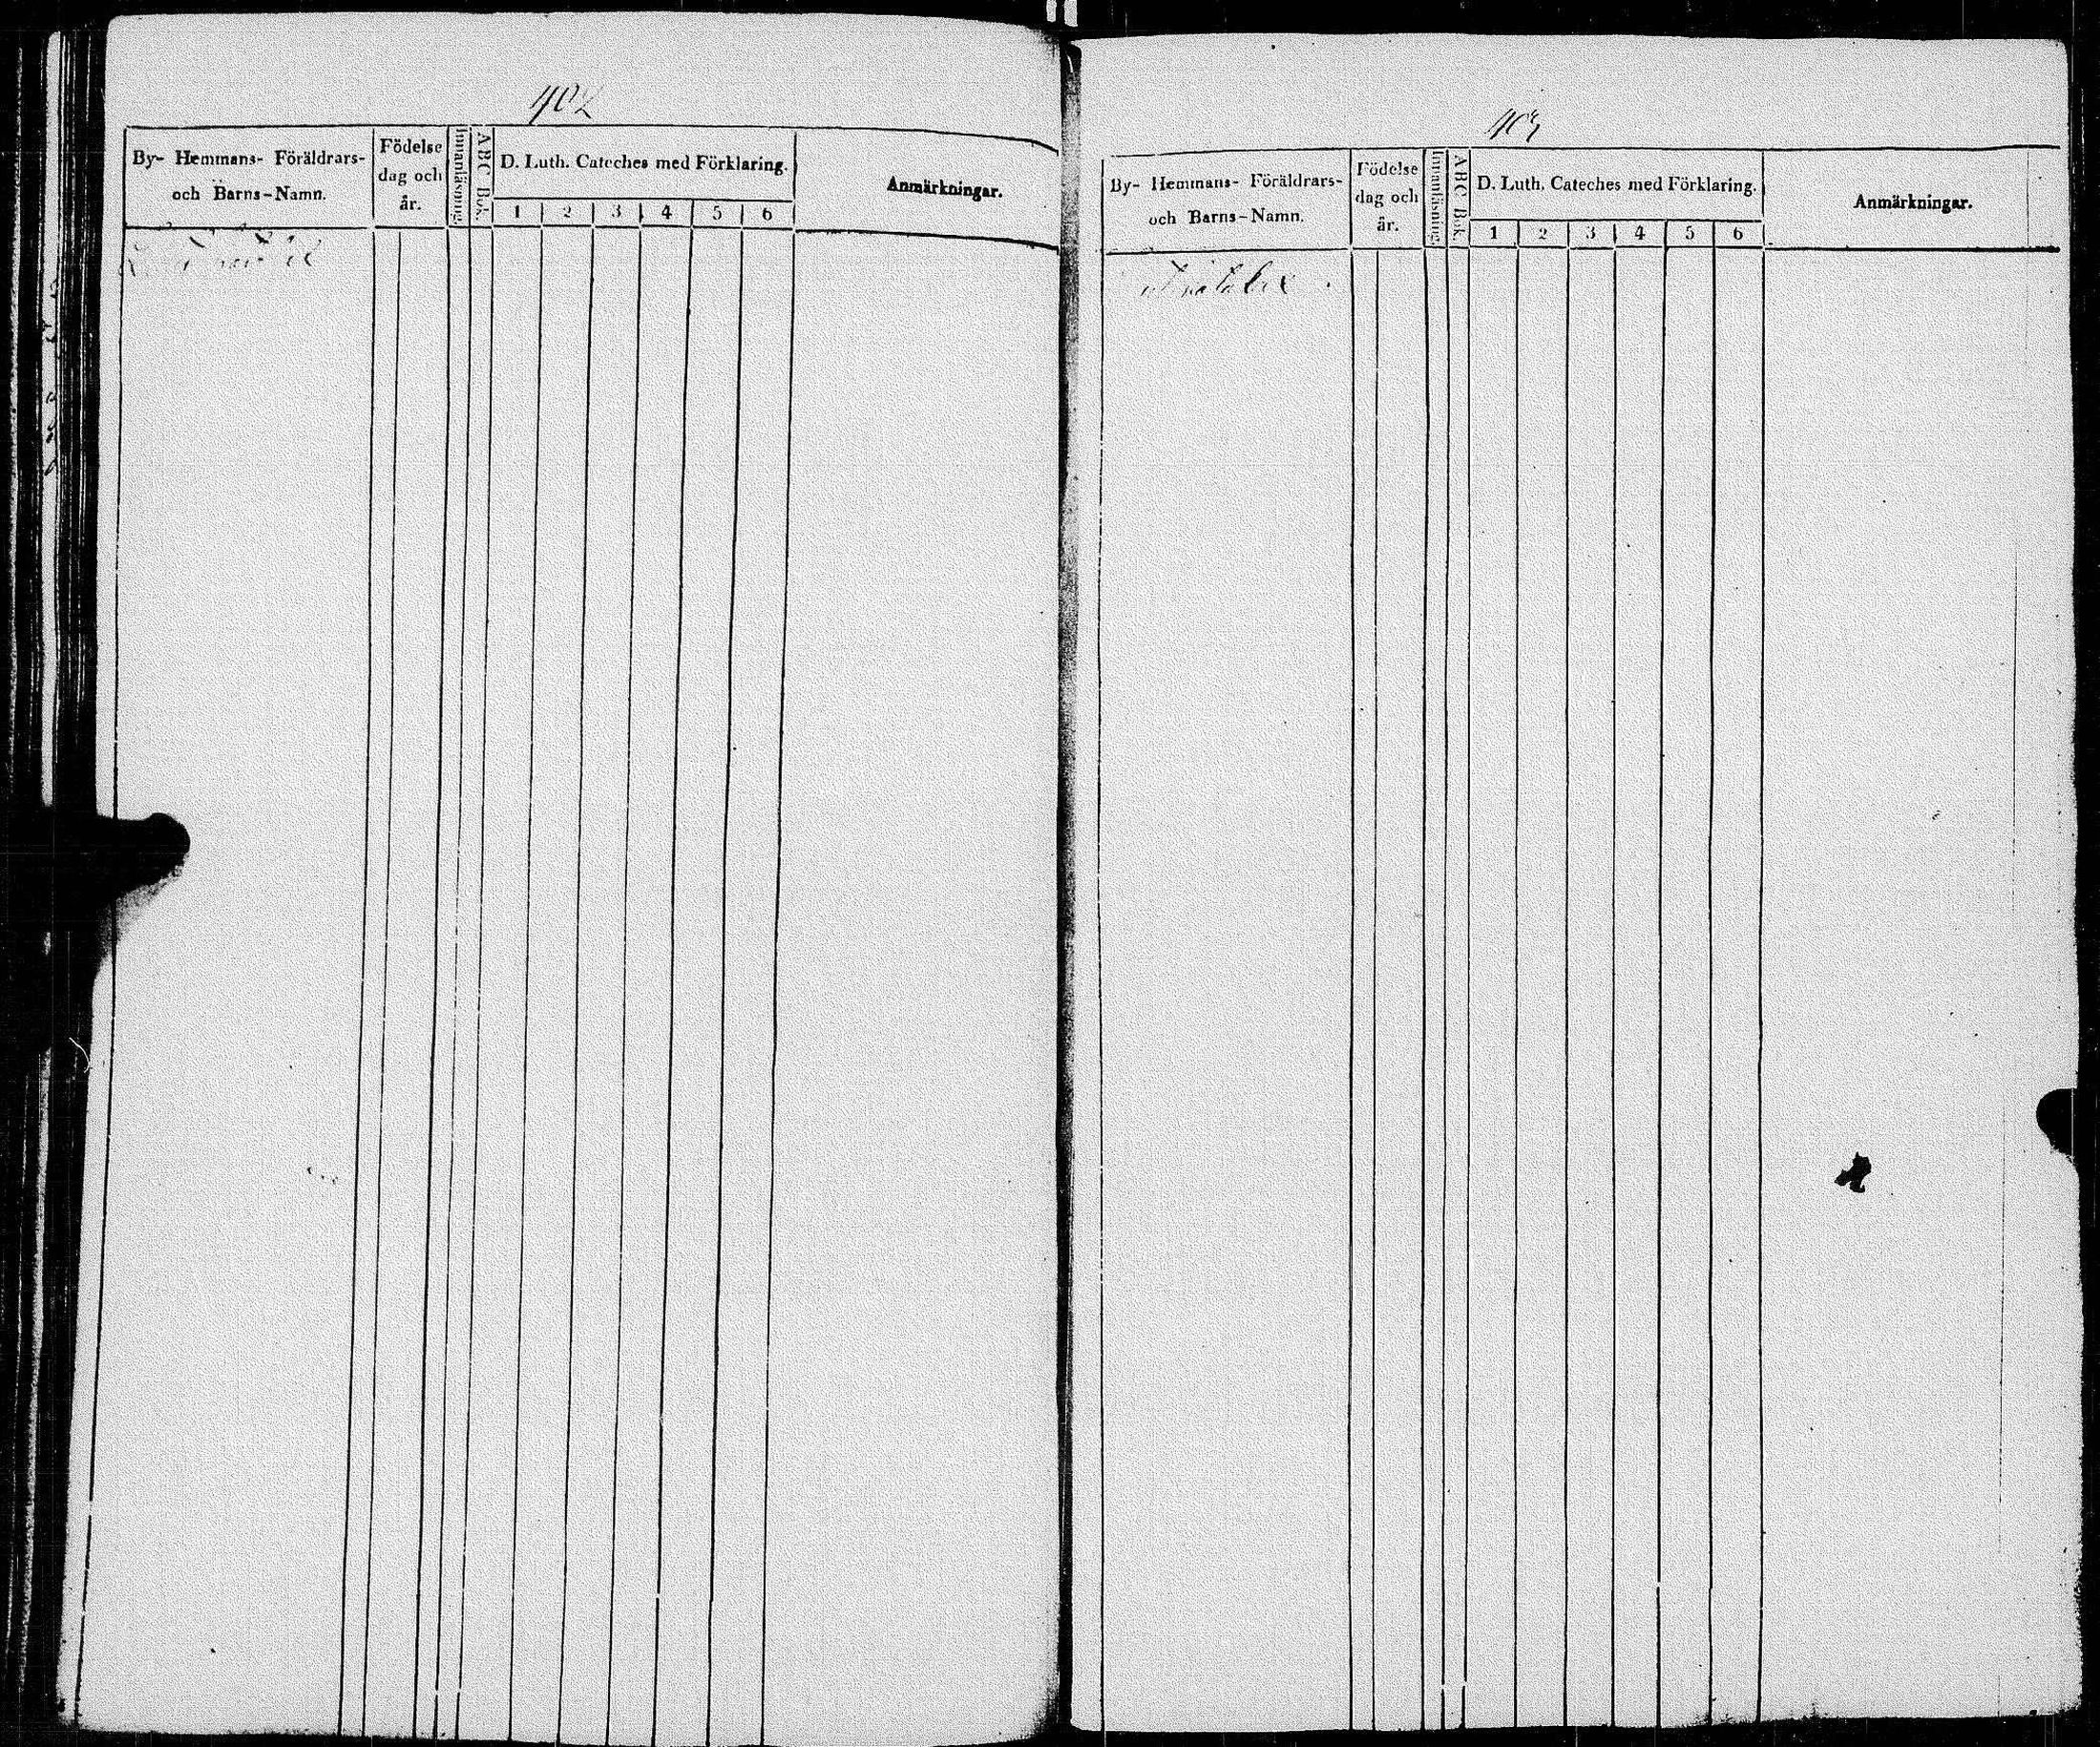 402
By- Hemmans- Föräldrars-
och Barns-Namn.
Födelse
dag och
år.
Innanläsning.
ABC Bok.
D. Luth. Cateches med Förklaring.
1 2 3 4 5 6
Anmärkningar.
403
By- Hemmans- Föräldrars-
och Barns-Namn.
Födelse
dag och
år.
Innanläsning.
ABC Bok.
D. Luth. Cateches med Förklaring.
1 2 3 4 5 6
Anmärkningar.